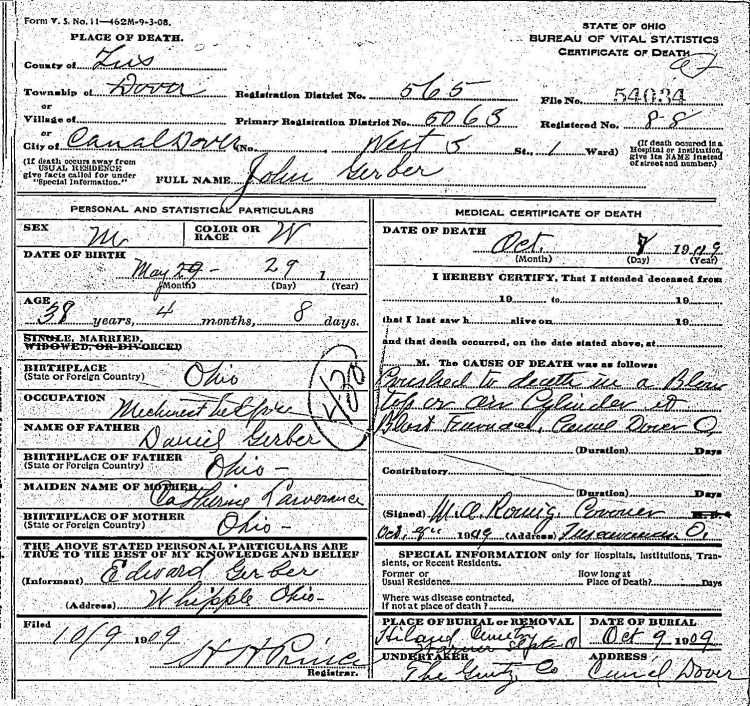 Form V. S. No. 11—462M-9-3-08.
STATE OF OHIO
BUREAU OF VITAL STATISTICS
CERTIFICATE OF DEATH
PLACE OF DEATH.
County of Tus
Township of Dover Registration District No. 565 File No. 54034
or
Village of Primary Registration District No. 5063 Registered No. 88
or
City of Canal Dover No. West 5 St., 1 Ward)
(If death occurs away from USUAL RESIDENCE give facts called for under "Special Information.")
(If death occured in a Hospital or Institution, give its NAME instead of street and number.)
FULL NAME John Gerber
PERSONAL AND STATISTICAL PARTICULARS
SEX M COLOR OR RACE W
DATE OF BIRTH
May 29- 29 1
(Month) (Day) (Year)
AGE
38 years, 4 months, 8 days.
SINGLE, MARRIED,
WIDOWED, OR DIVORCED
BIRTHPLACE
(State or Foreign Country) Ohio
430
OCCUPATION
NAME OF FATHER
Daniel Gerber
BIRTHPLACE OF FATHER
(State or Foreign Country) Ohio-
MAIDEN NAME OF MOTHER
Catherine
BIRTHPLACE OF MOTHER
(State or Foreign Country) Ohio-
THE ABOVE STATED PERSONAL PARTICULARS ARE
TRUE TO THE BEST OF MY KNOWLEDGE AND BELIEF
(Informant) Edward Gerber
(Address) Whipple Ohio-
Filed
10/9 1909
H H Prince
Registrar.
MEDICAL CERTIFICATE OF DEATH
DATE OF DEATH
Oct. 7 1909
(Month) (Day) (Year)
I HEREBY CERTIFY, That I attended deceased from
19 to 19
that I last saw h alive on 19
and that death occurred, on the date stated above, at
M. The CAUSE OF DEATH was as follows:
Crushed to death in a Blow
air Cylinder at
Blast Furnace, Canal Dover O,
(Duration) Days
Contributory
(Duration) Days
(Signed) Coroner M.D.
Oct. 1909 (Address)
SPECIAL INFORMATION only for Hospitals, Institutions, Transients, or Recent Residents.
Former or Usual Residence
How long at Place of Death? Days
Where was disease contracted,
if not at place of death?
PLACE OF BURIAL or REMOVAL
DATE OF BURIAL
Oct 9 1909
UNDERTAKER
The Co
ADDRESS
Canal Dover